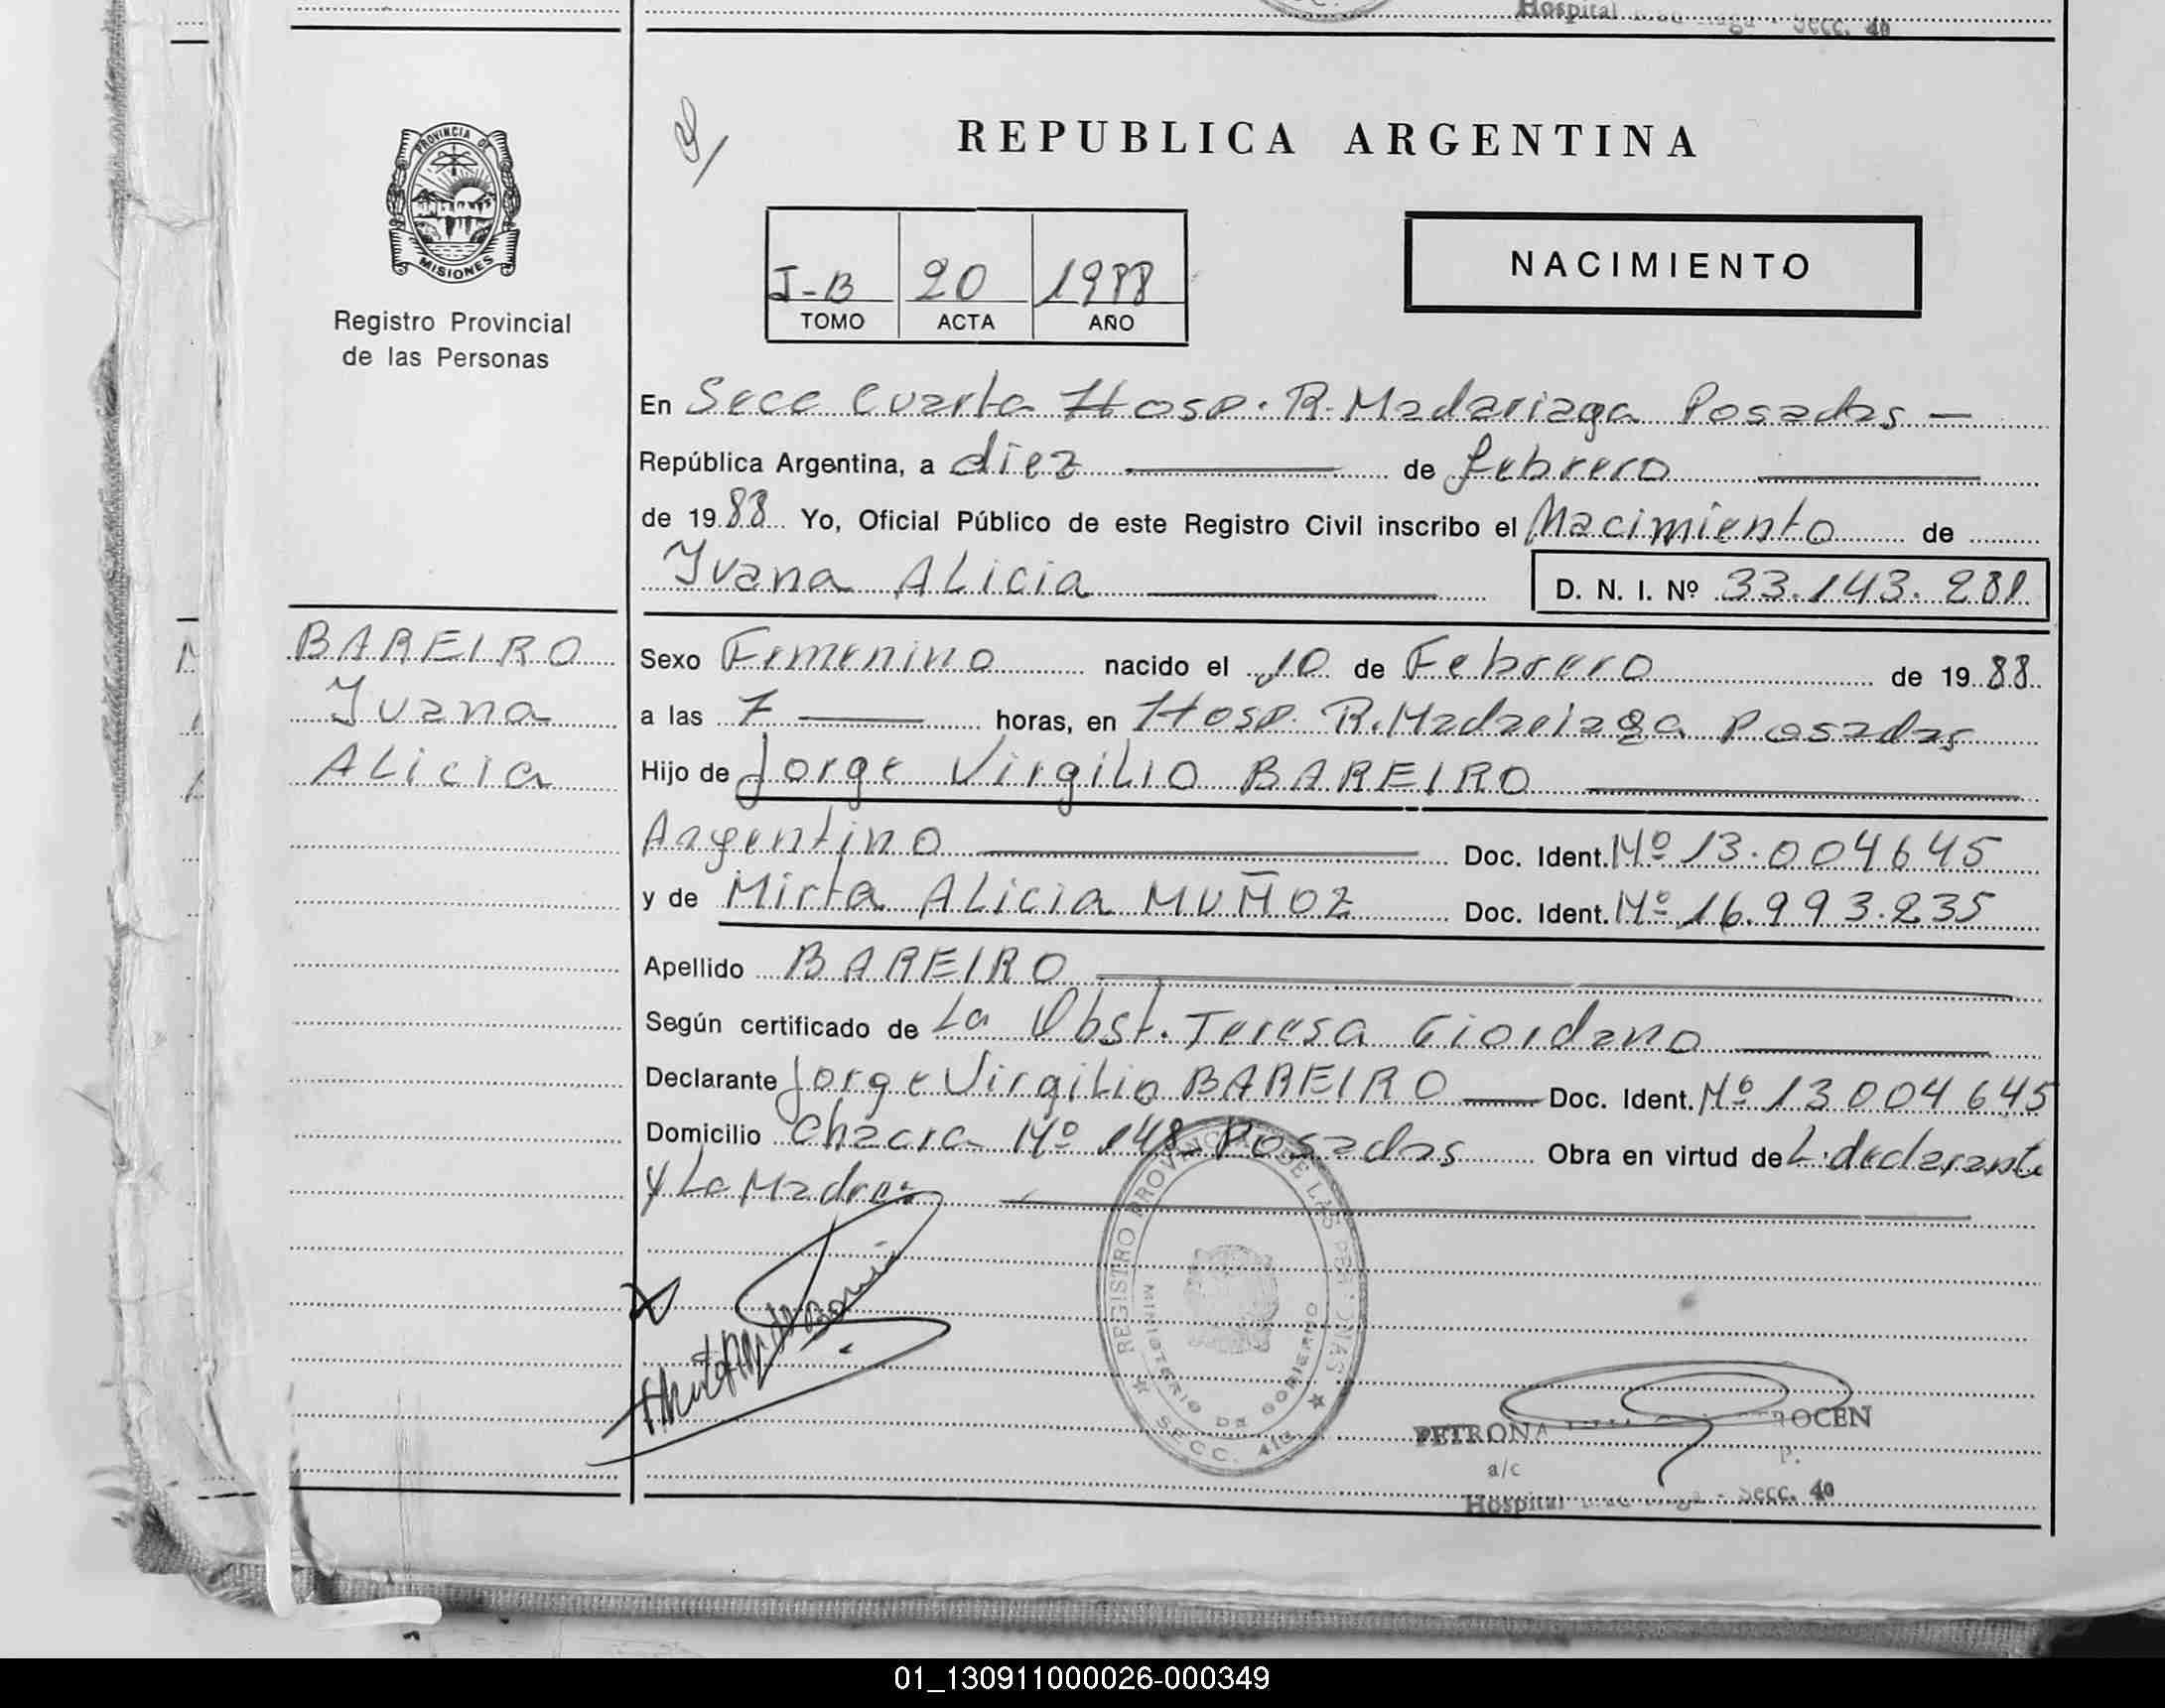 Hospital Secc. 40
PROVINCIA DE
MISIONES
Registro Provincial
de las Personas
REPUBLICA ARGENTINA
J-B 20 1988
TOMO ACTA AÑO
NACIMIENTO
En Secc Cuarta Hosp. R. Madariaga Posadas —
República Argentina, a diez de febrero
de 1988 Yo, Oficial Público de este Registro Civil inscribo el Nacimiento de
Ivana ALicia D. N. I. Nº 33.143.281
BAREIRO
Ivana
ALicia
Sexo Femenino nacido el 10 de Febrero de 1988
a las 7 horas, en Hosp. R. Madariaga Posadas
Hijo de Jorge VirgiLio BAREIRO
Argentino Doc. Ident. Nº 13.004645
y de Mirta ALicia MUÑOZ Doc. Ident. Nº 16.993.235
Apellido BAREIRO
Según certificado de La Obst. Teresa Giordano
Declarante Jorge VirgiLio BAREIRO Doc. Ident. Nº 13004645
Domicilio Chacra Nº 148 Posadas Obra en virtud de L. declarante
y La Madre
REGISTRO PROVINCIAL DE LAS PERSONAS
MINISTERIO DE GOBIERNO
SECC. 4ta
PETRONA
a/c
Hospital - Secc. 40
01_130911000026-000349